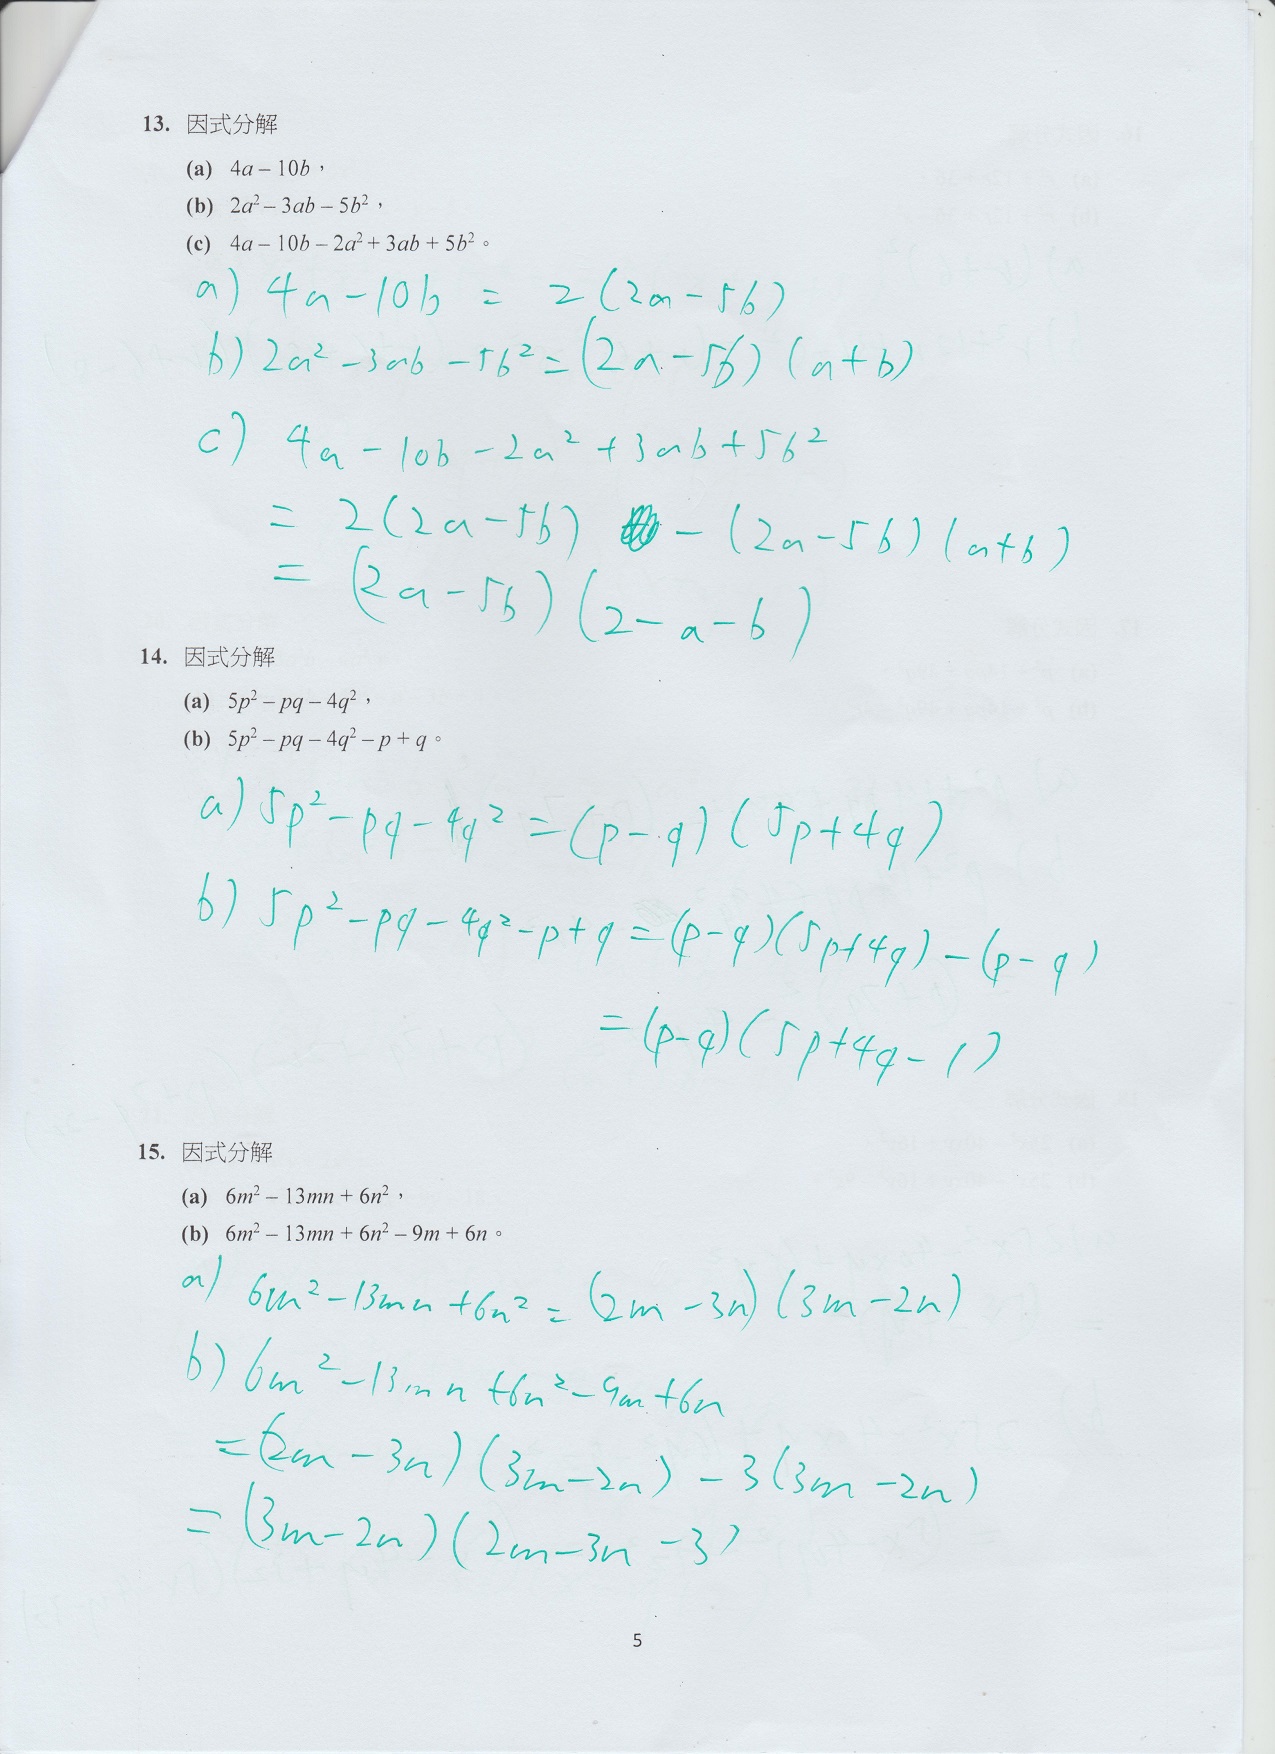 13. 因式分解
(a) 4a – 10b，
(b) 2a² – 3ab – 5b²，
(c) 4a – 10b – 2a² + 3ab + 5b²。
a) 4a – 10b = 2(2a – 5b)
b) 2a² – 3ab – 5b² = (2a – 5b)(a + b)
c) 4a – 10b – 2a² + 3ab + 5b²
= 2(2a – 5b) – (2a – 5b)(a + b)
= (2a – 5b)(2 – a – b)
14. 因式分解
(a) 5p² – pq – 4q²，
(b) 5p² – pq – 4q² – p + q。
a) 5p² – pq – 4q² = (p – q)(5p + 4q)
b) 5p² – pq – 4q² – p + q = (p – q)(5p + 4q) – (p – q)
= (p – q)(5p + 4q – 1)
15. 因式分解
(a) 6m² – 13mn + 6n²，
(b) 6m² – 13mn + 6n² – 9m + 6n。
a) 6m² – 13mn + 6n² = (2m – 3n)(3m – 2n)
b) 6m² – 13mn + 6n² – 9m + 6n
= (2m – 3n)(3m – 2n) – 3(3m – 2n)
= (3m – 2n)(2m – 3n – 3)
5